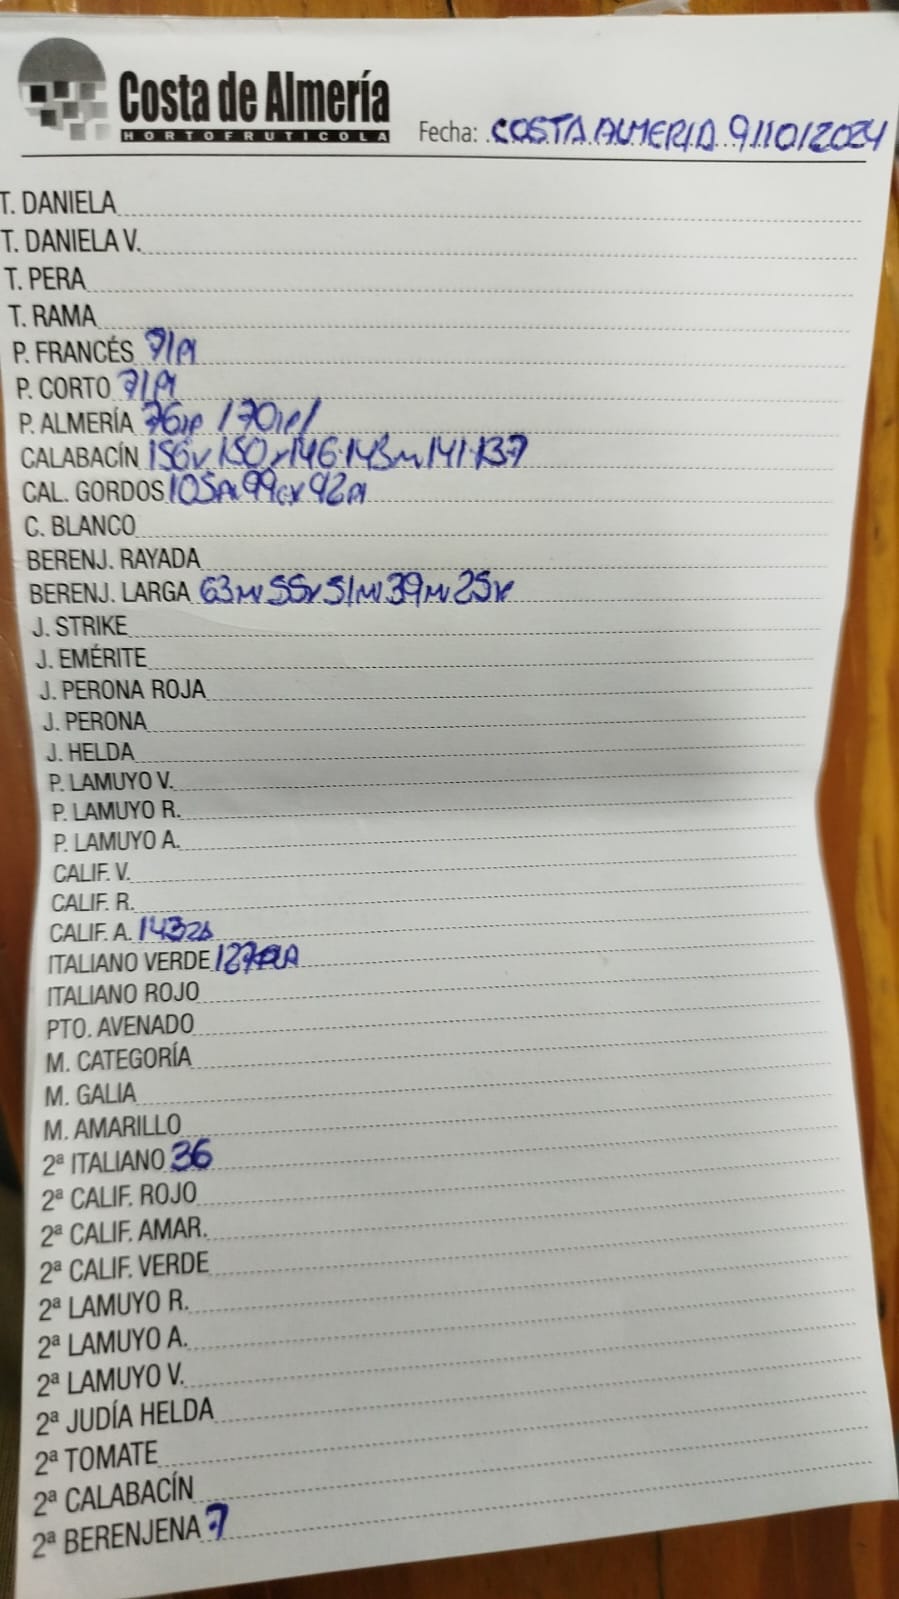 Costa de Almería
HORTOFRUTICOLA
Fecha: COSTA ALMERIA 9/10/2024
T. DANIELA
T. DANIELA V.
T. PERA
T. RAMA
P. FRANCÉS 71
P. CORTO 71
P. ALMERÍA 76 / 70
CALABACÍN 156 150 146 143 141 137
CAL. GORDOS 105 99 92
C. BLANCO
BERENJ. RAYADA
BERENJ. LARGA 63 55 51 39 25
J. STRIKE
J. EMÉRITE
J. PERONA ROJA
J. PERONA
J. HELDA
P. LAMUYO V.
P. LAMUYO R.
P. LAMUYO A.
CALIF. V.
CALIF. R.
CALIF. A. 143
ITALIANO VERDE 127
ITALIANO ROJO
PTO. AVENADO
M. CATEGORÍA
M. GALIA
M. AMARILLO
2ª ITALIANO 36
2ª CALIF. ROJO
2ª CALIF. AMAR.
2ª CALIF. VERDE
2ª LAMUYO R.
2ª LAMUYO A.
2ª LAMUYO V.
2ª JUDÍA HELDA
2ª TOMATE
2ª CALABACÍN
2ª BERENJENA 7